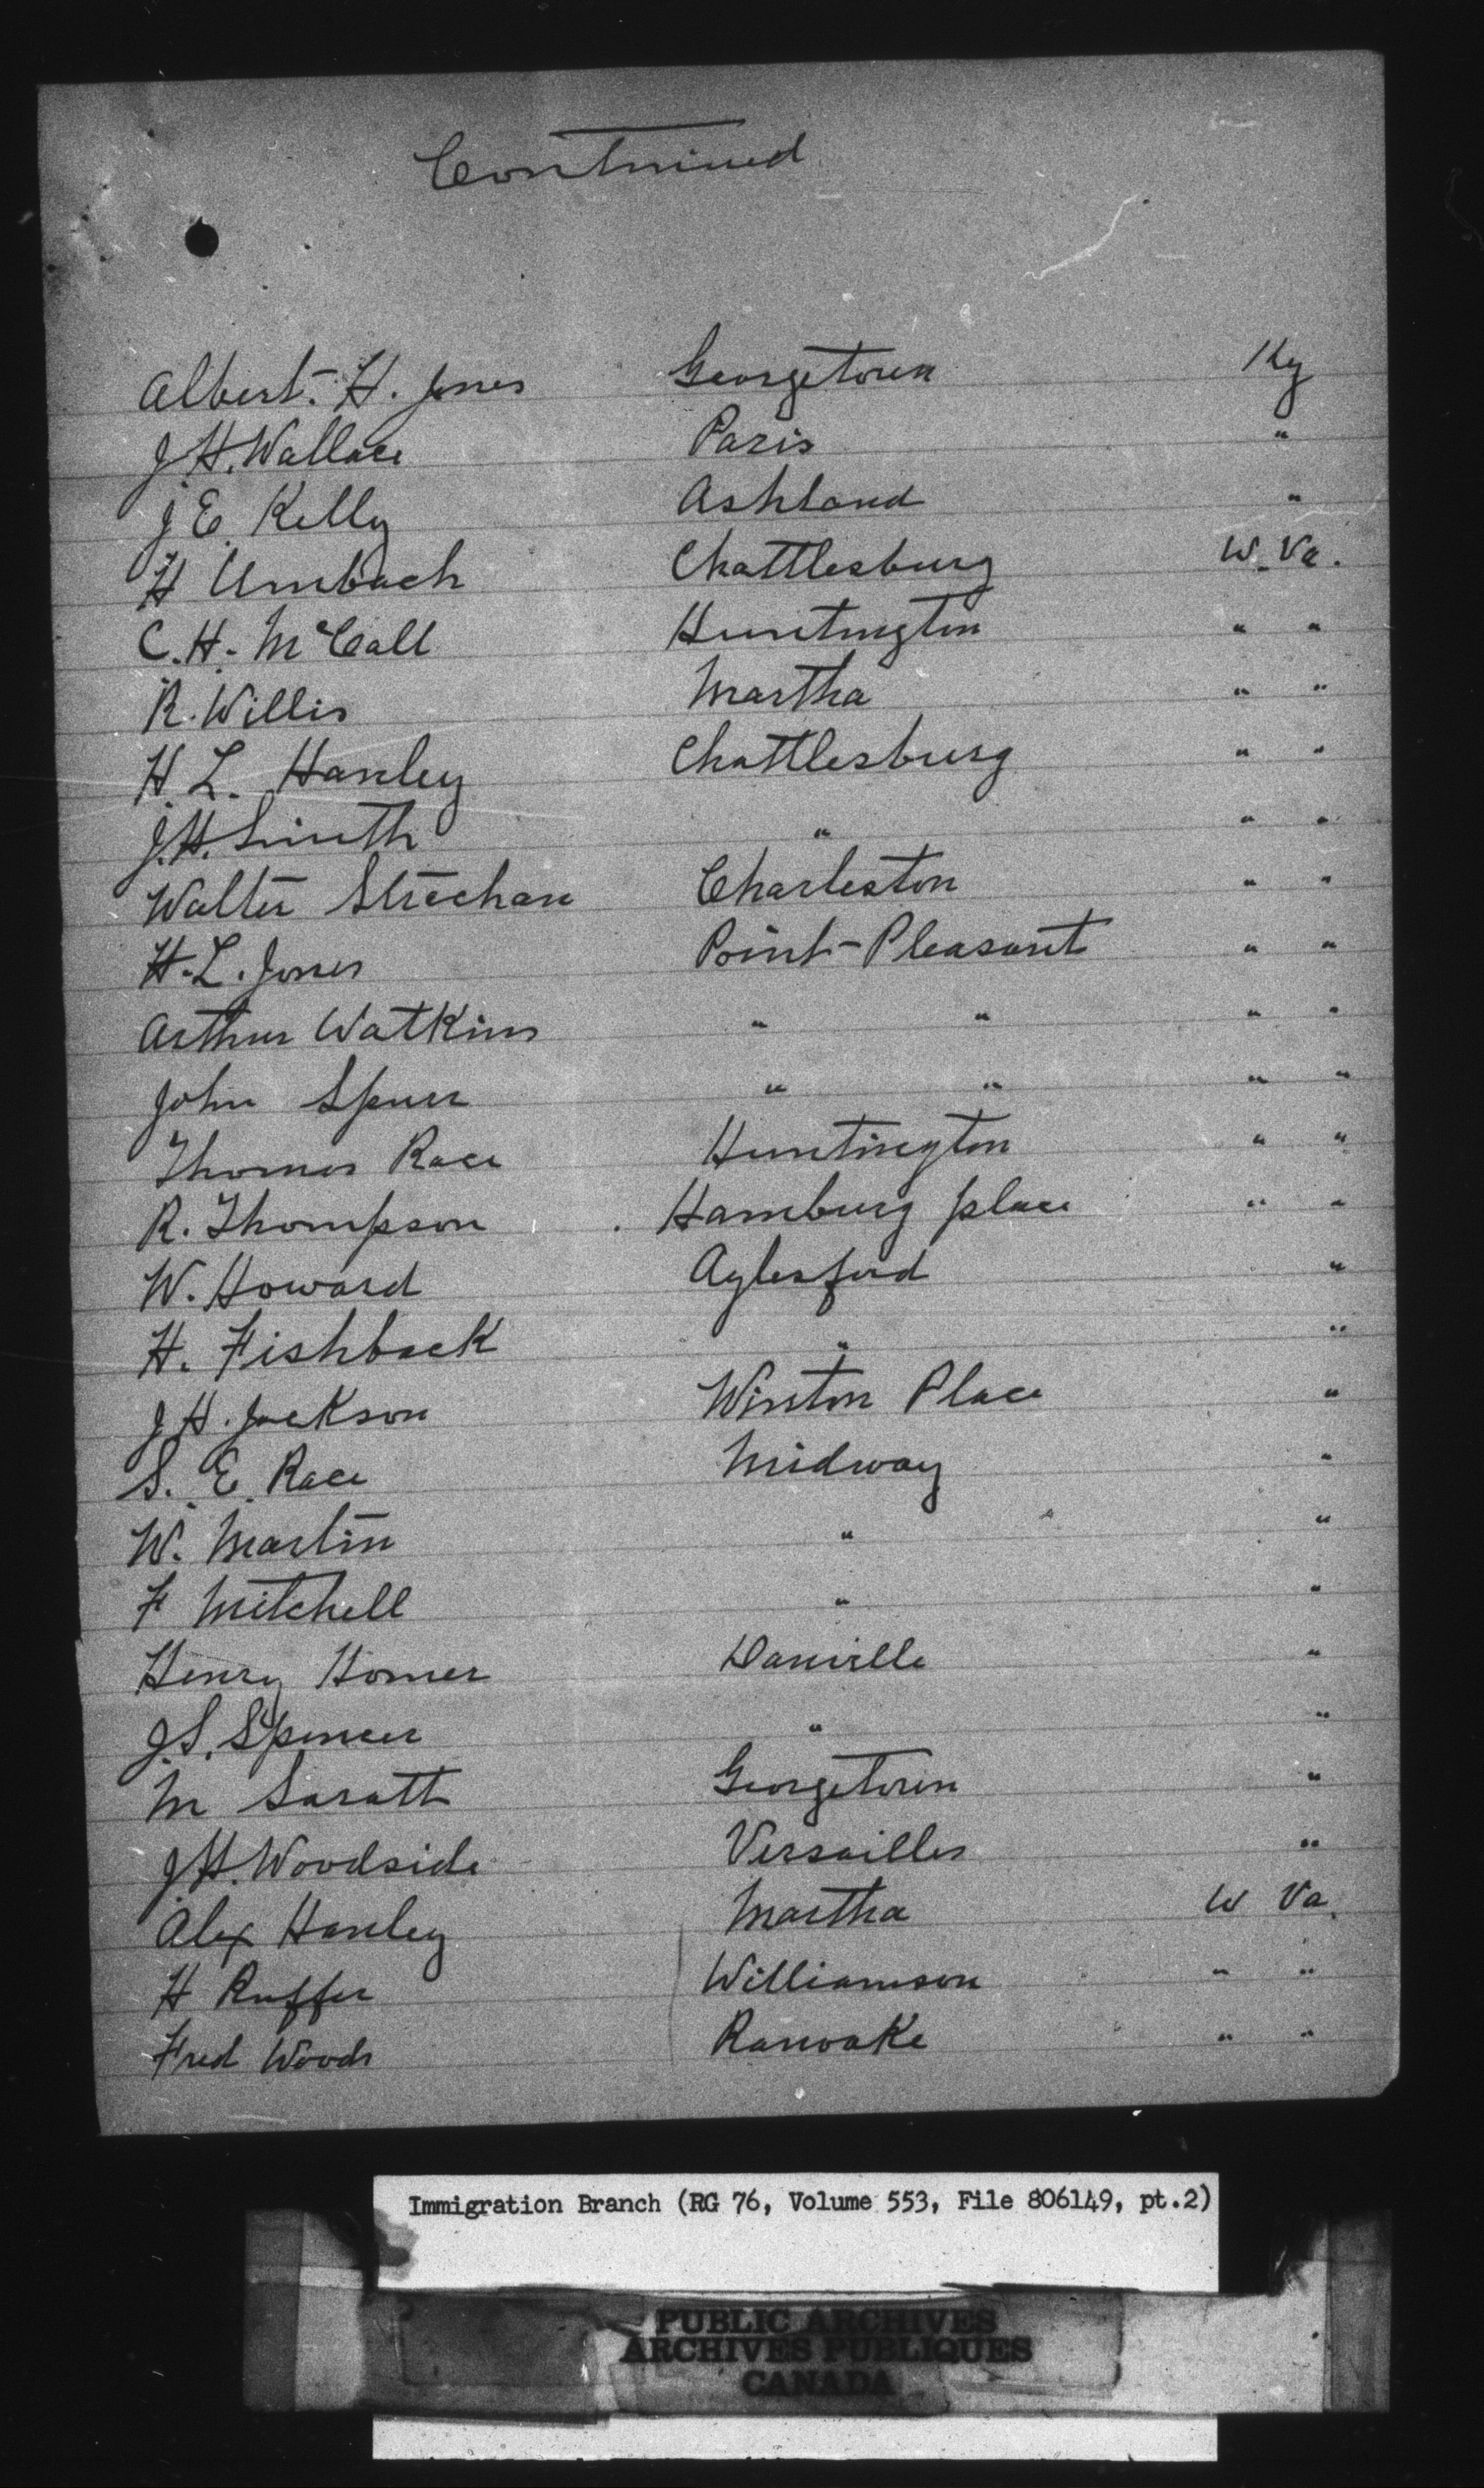 Continued
Albert. H. Jones Georgetown Ky
J. H. Wallace Paris "
J E. Kelly Ashland "
H Umbach Chattlesburg W. Va.
C. H. McCall Huntington " "
R. Willis Martha " "
H. L. Hanley Chattlesburg " "
J. H. Smith " " "
Walter Strechan Charleston " "
H. L. Jones Point-Pleasant " "
Arthur Watkins " " " "
John Spurr " " " "
Thomas Race Huntington " "
R. Thompson Hamburg place " "
W. Howard Aylesford "
H. Fishback " "
J H. Jackson Winton Place "
S. E. Race Midway "
W. Martin " "
F Mitchell " "
Henry Homer Danville "
J. S. Spencer " "
M Saratt Georgetown "
J. H. Woodside Versailles "
Alex Hanley Martha W Va.
H Ruffer Williamson " "
Fred Woods Ranoake " "
Immigration Branch (RG 76, Volume 553, File 806149, pt.2)
PUBLIC ARCHIVES
ARCHIVES PUBLIQUES
CANADA